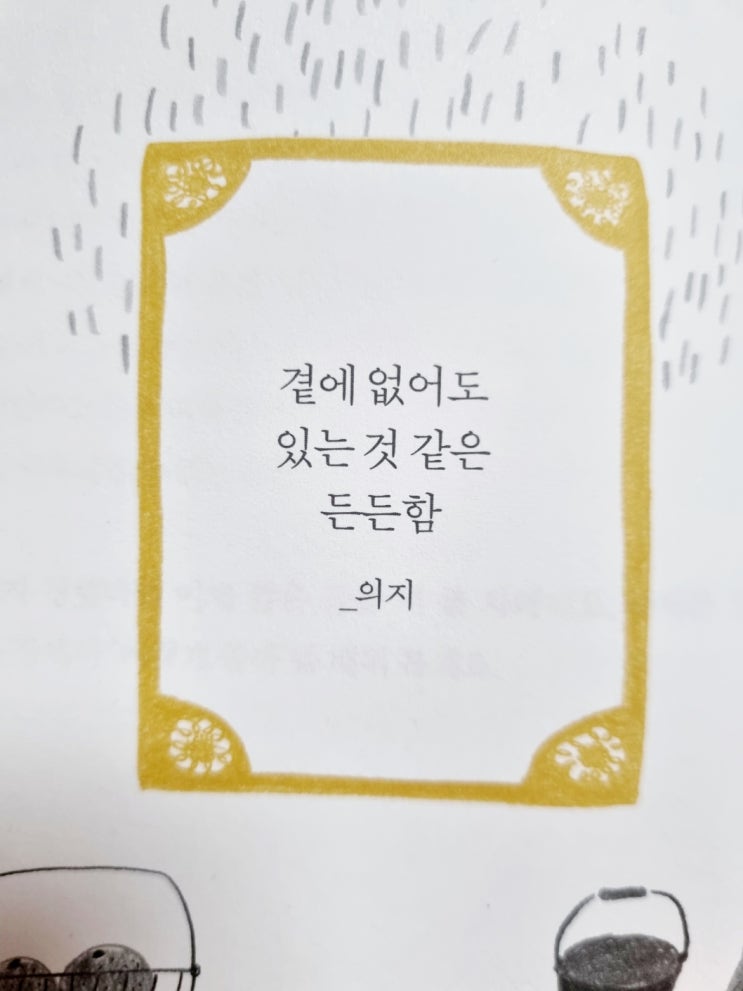 곁에 없어도
있는 것 같은
든든함
_의지